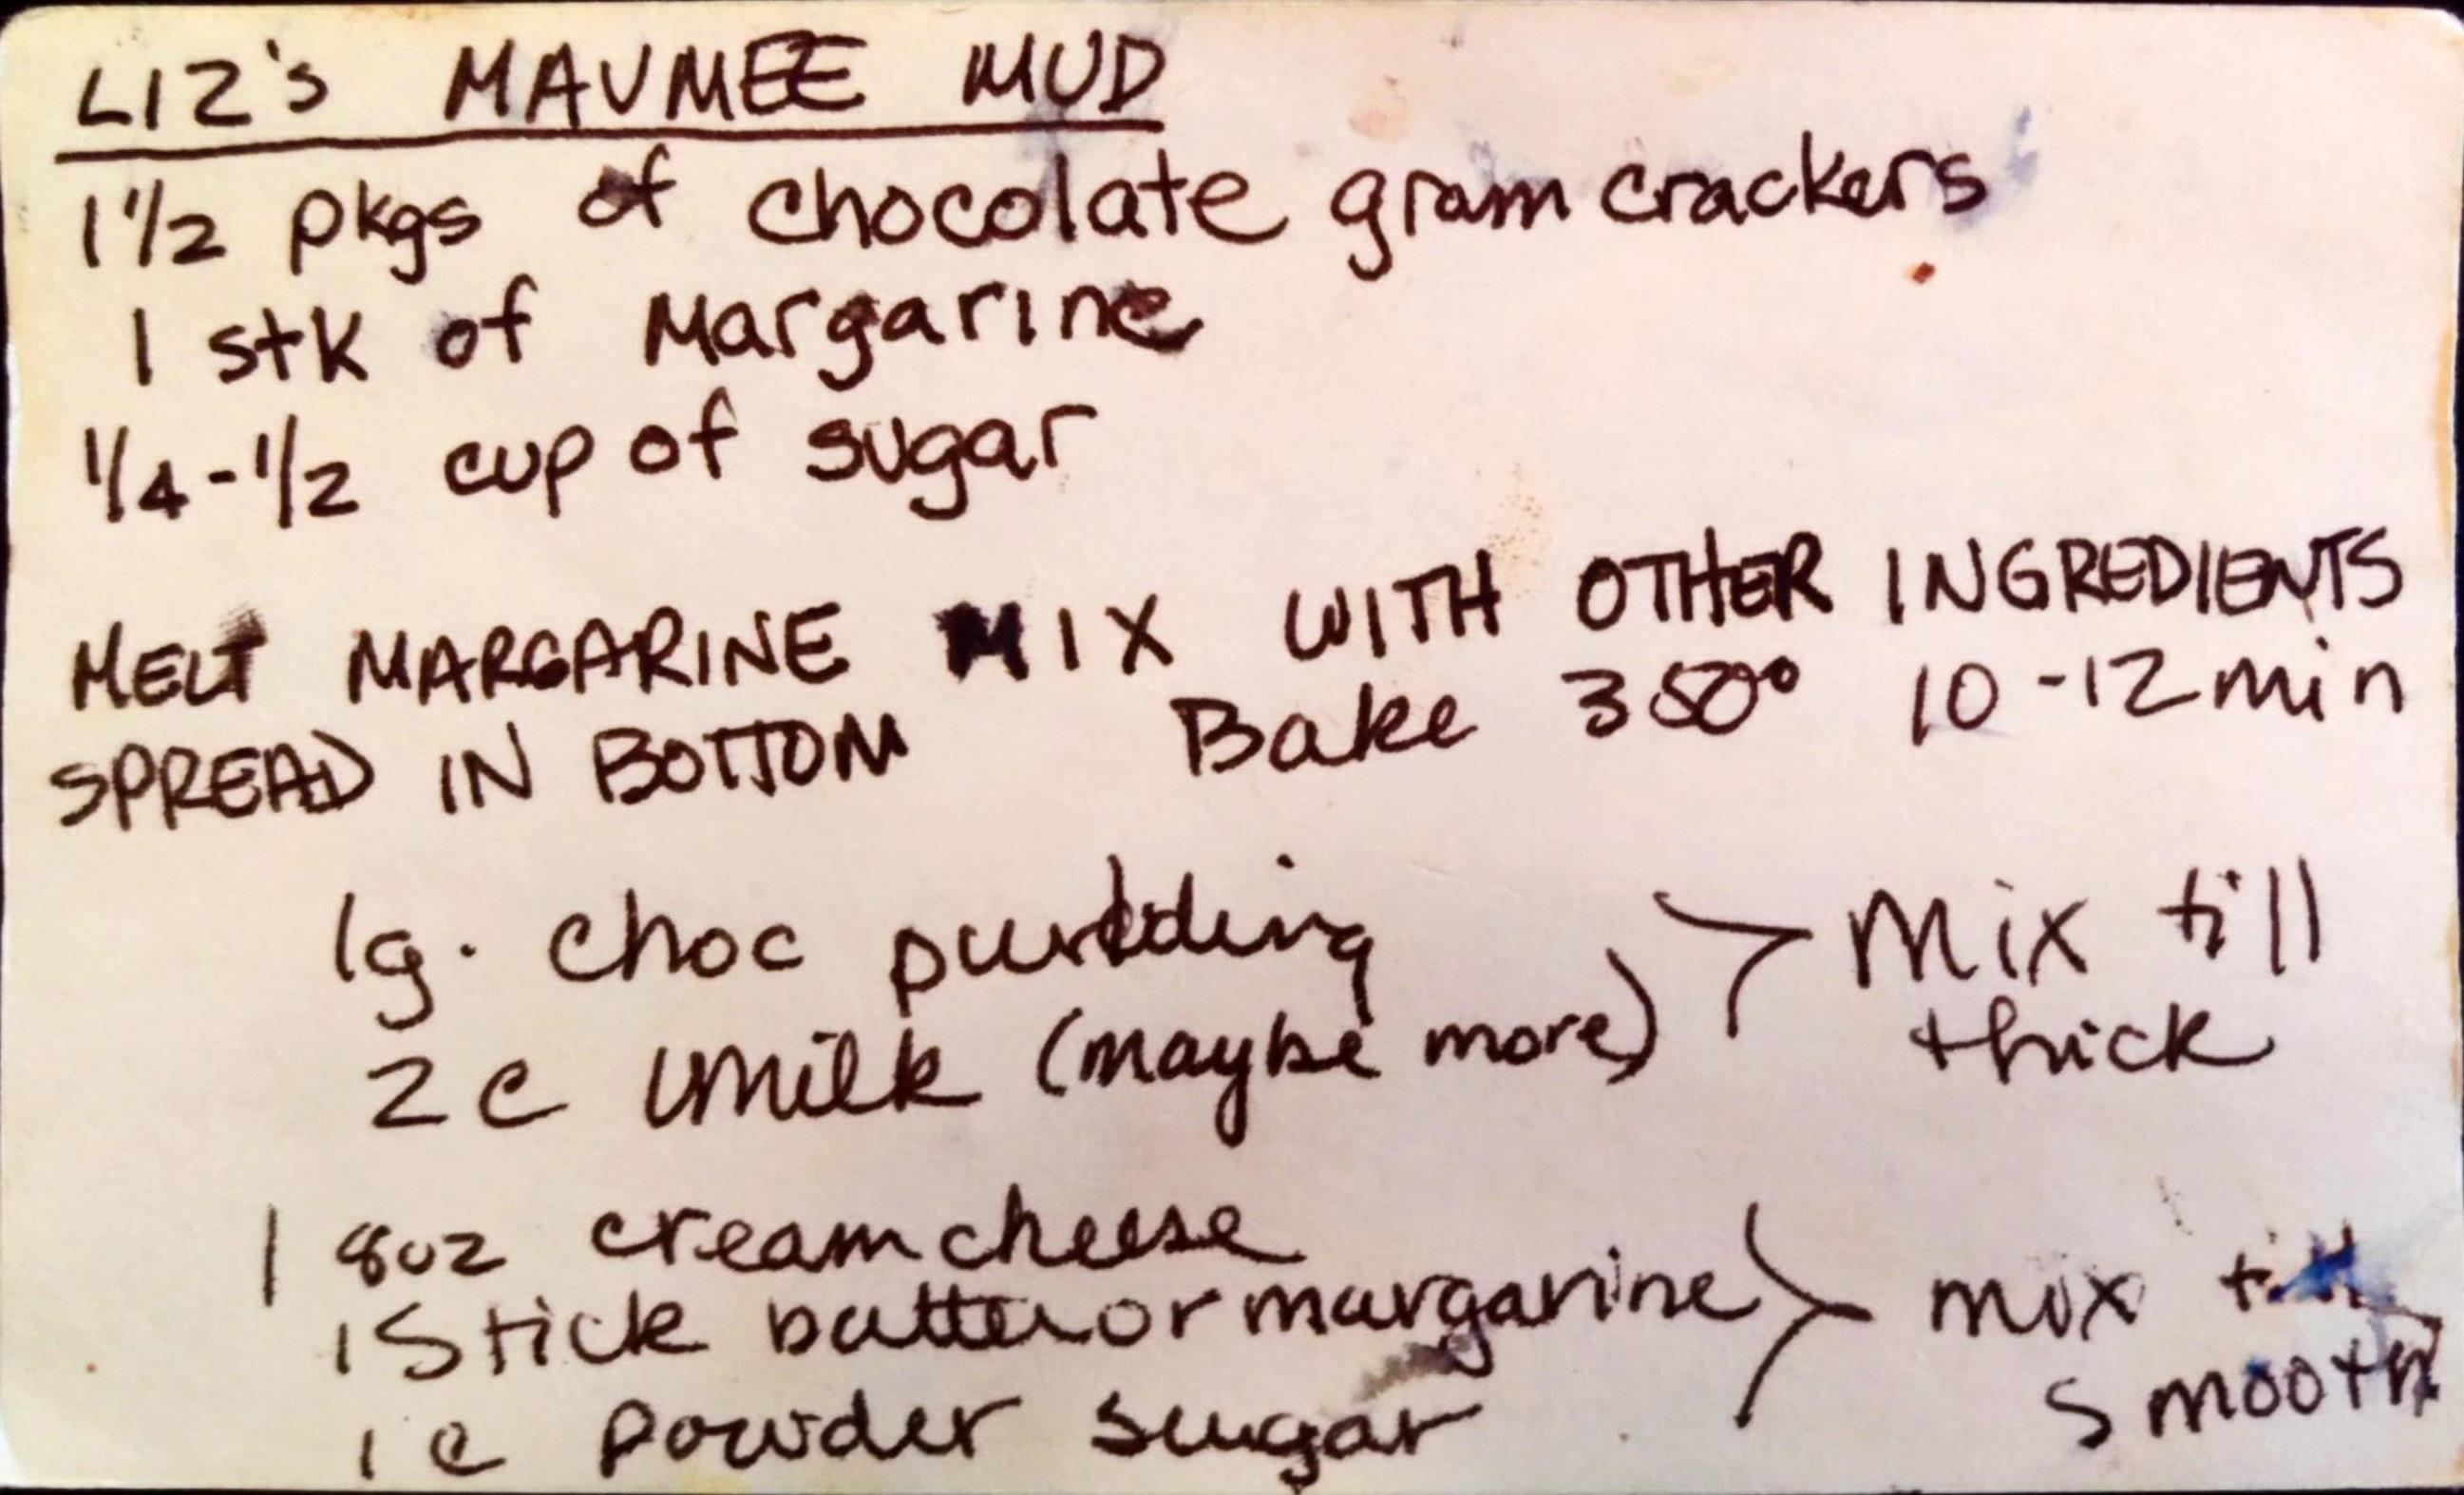 LIZ's MAUMEE MUD
1 1/2 pkgs of chocolate gram crackers
1 stk of Margarine
1/4 - 1/2 cup of sugar
MELT MARGARINE MIX WITH OTHER INGREDIENTS
SPREAD IN BOTTOM Bake 350° 10-12 min
lg. choc pudding
2 c milk (maybe more) > Mix till
thick
1 8oz creamcheese
1 Stick butter or margarine > mix till
smooth
1 c powder sugar